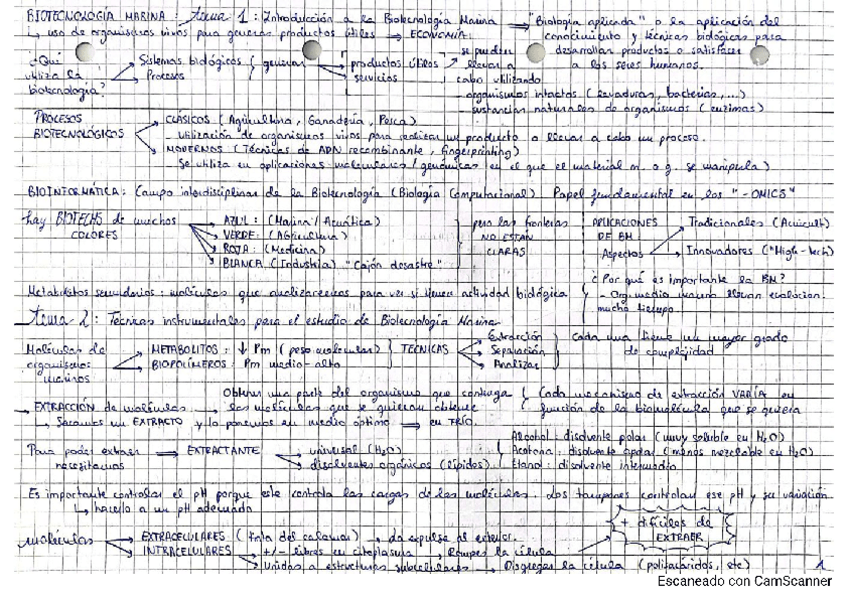 BIOTECNOLOGÍA MARINA: Tema 1: Introducción a la Biotecnología Marina → "Biología aplicada" o la aplicación del
↳ uso de organismos vivos para generar productos útiles → ECONOMÍA. conocimiento y técnicas biológicas para
desarrollar productos o satisfacer
a los seres humanos.
¿Qué utiliza la biotecnología? Sistemas biológicos
Procesos
generar productos útiles
servicios
se pueden llevar a cabo utilizando
- organismos intactos (levaduras, bacterias,...)
- sustancias naturales de organismos (enzimas)
PROCESOS BIOTECNOLÓGICOS
CLÁSICOS (Agricultura, Ganadería, Pesca)
- utilización de organismos vivos para realizar un producto o llevar a cabo un proceso.
MODERNOS (Técnicas de ADN recombinante, fingerprinting)
- Se utiliza en aplicaciones moleculares/genómicas en el que el material m. o g. se manipula)
BIOINFORMÁTICA: Campo interdisciplinar de la Biotecnología (Biología Computacional) Papel fundamental en los "-OMICS"
hay BIOTECHS de muchos COLORES
AZUL: (Marina/Acuática)
VERDE: (Agricultura)
ROJA: (Medicina)
BLANCA (Industria) "Cajón desastre"
pero las fronteras NO ESTÁN CLARAS
APLICACIONES DE BM:
Aspectos
Tradicionales (Acuicult)
Innovadores ("High-tech)
¿Por qué es importante la BM?
- Org. medio marino llevan evolucion.
mucho tiempo.
Metabolitos secundarios: moléculas que analizaremos para ver si tienen actividad biológica
Tema 2: Técnicas instrumentales para el estudio de Biotecnología Marina
Moléculas de organismos marinos
METABOLITOS: ↓ Pm (peso molecular)
BIOPOLÍMEROS: Pm medio-alto
TÉCNICAS
Extracción
Separación
Analizar
Cada una tiene un mayor grado
de complejidad
→ EXTRACCIÓN de moléculas → Obtener una parte del organismo que contenga
las moléculas que se quieran obtener
Cada mecanismo de extracción VARÍA en
función de la biomolécula que se quiera
↳ Sacamos un EXTRACTO y lo ponemos en medio óptimo → en FRÍO.
Para poder extraer necesitamos → EXTRACTANTE
universal (H₂O)
disolventes orgánicos (lípidos)
Alcohol: disolvente polar (muy soluble en H₂O)
Acetona: disolvente apolar (menos mezclable en H₂O)
Etanol: disolvente intermedio
Es importante controlar el pH porque este controla las cargas de las moléculas. Los tampones controlan ese pH y su variación
↳ hacerlo a un pH adecuado
moléculas
EXTRACELULARES (tinta del calamar) → la expulse al exterior.
INTRACELULARES → +/- libres en citoplasma → Rompes la célula
Unidas a estructuras subcelulares → Disgregar la célula (polisacáridos, etc)
+ difíciles de EXTRAER
1
Escaneado con CamScanner